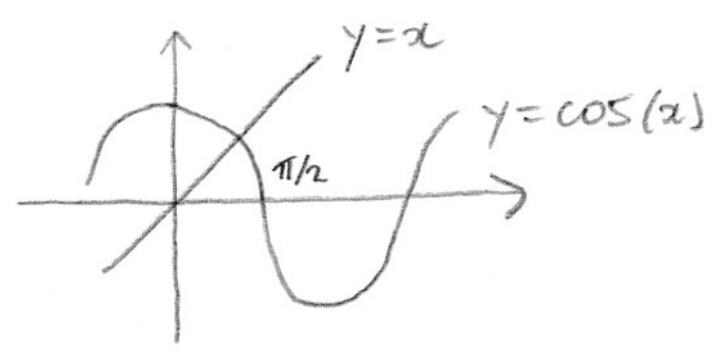 y=x
y=cos(x)
π/2